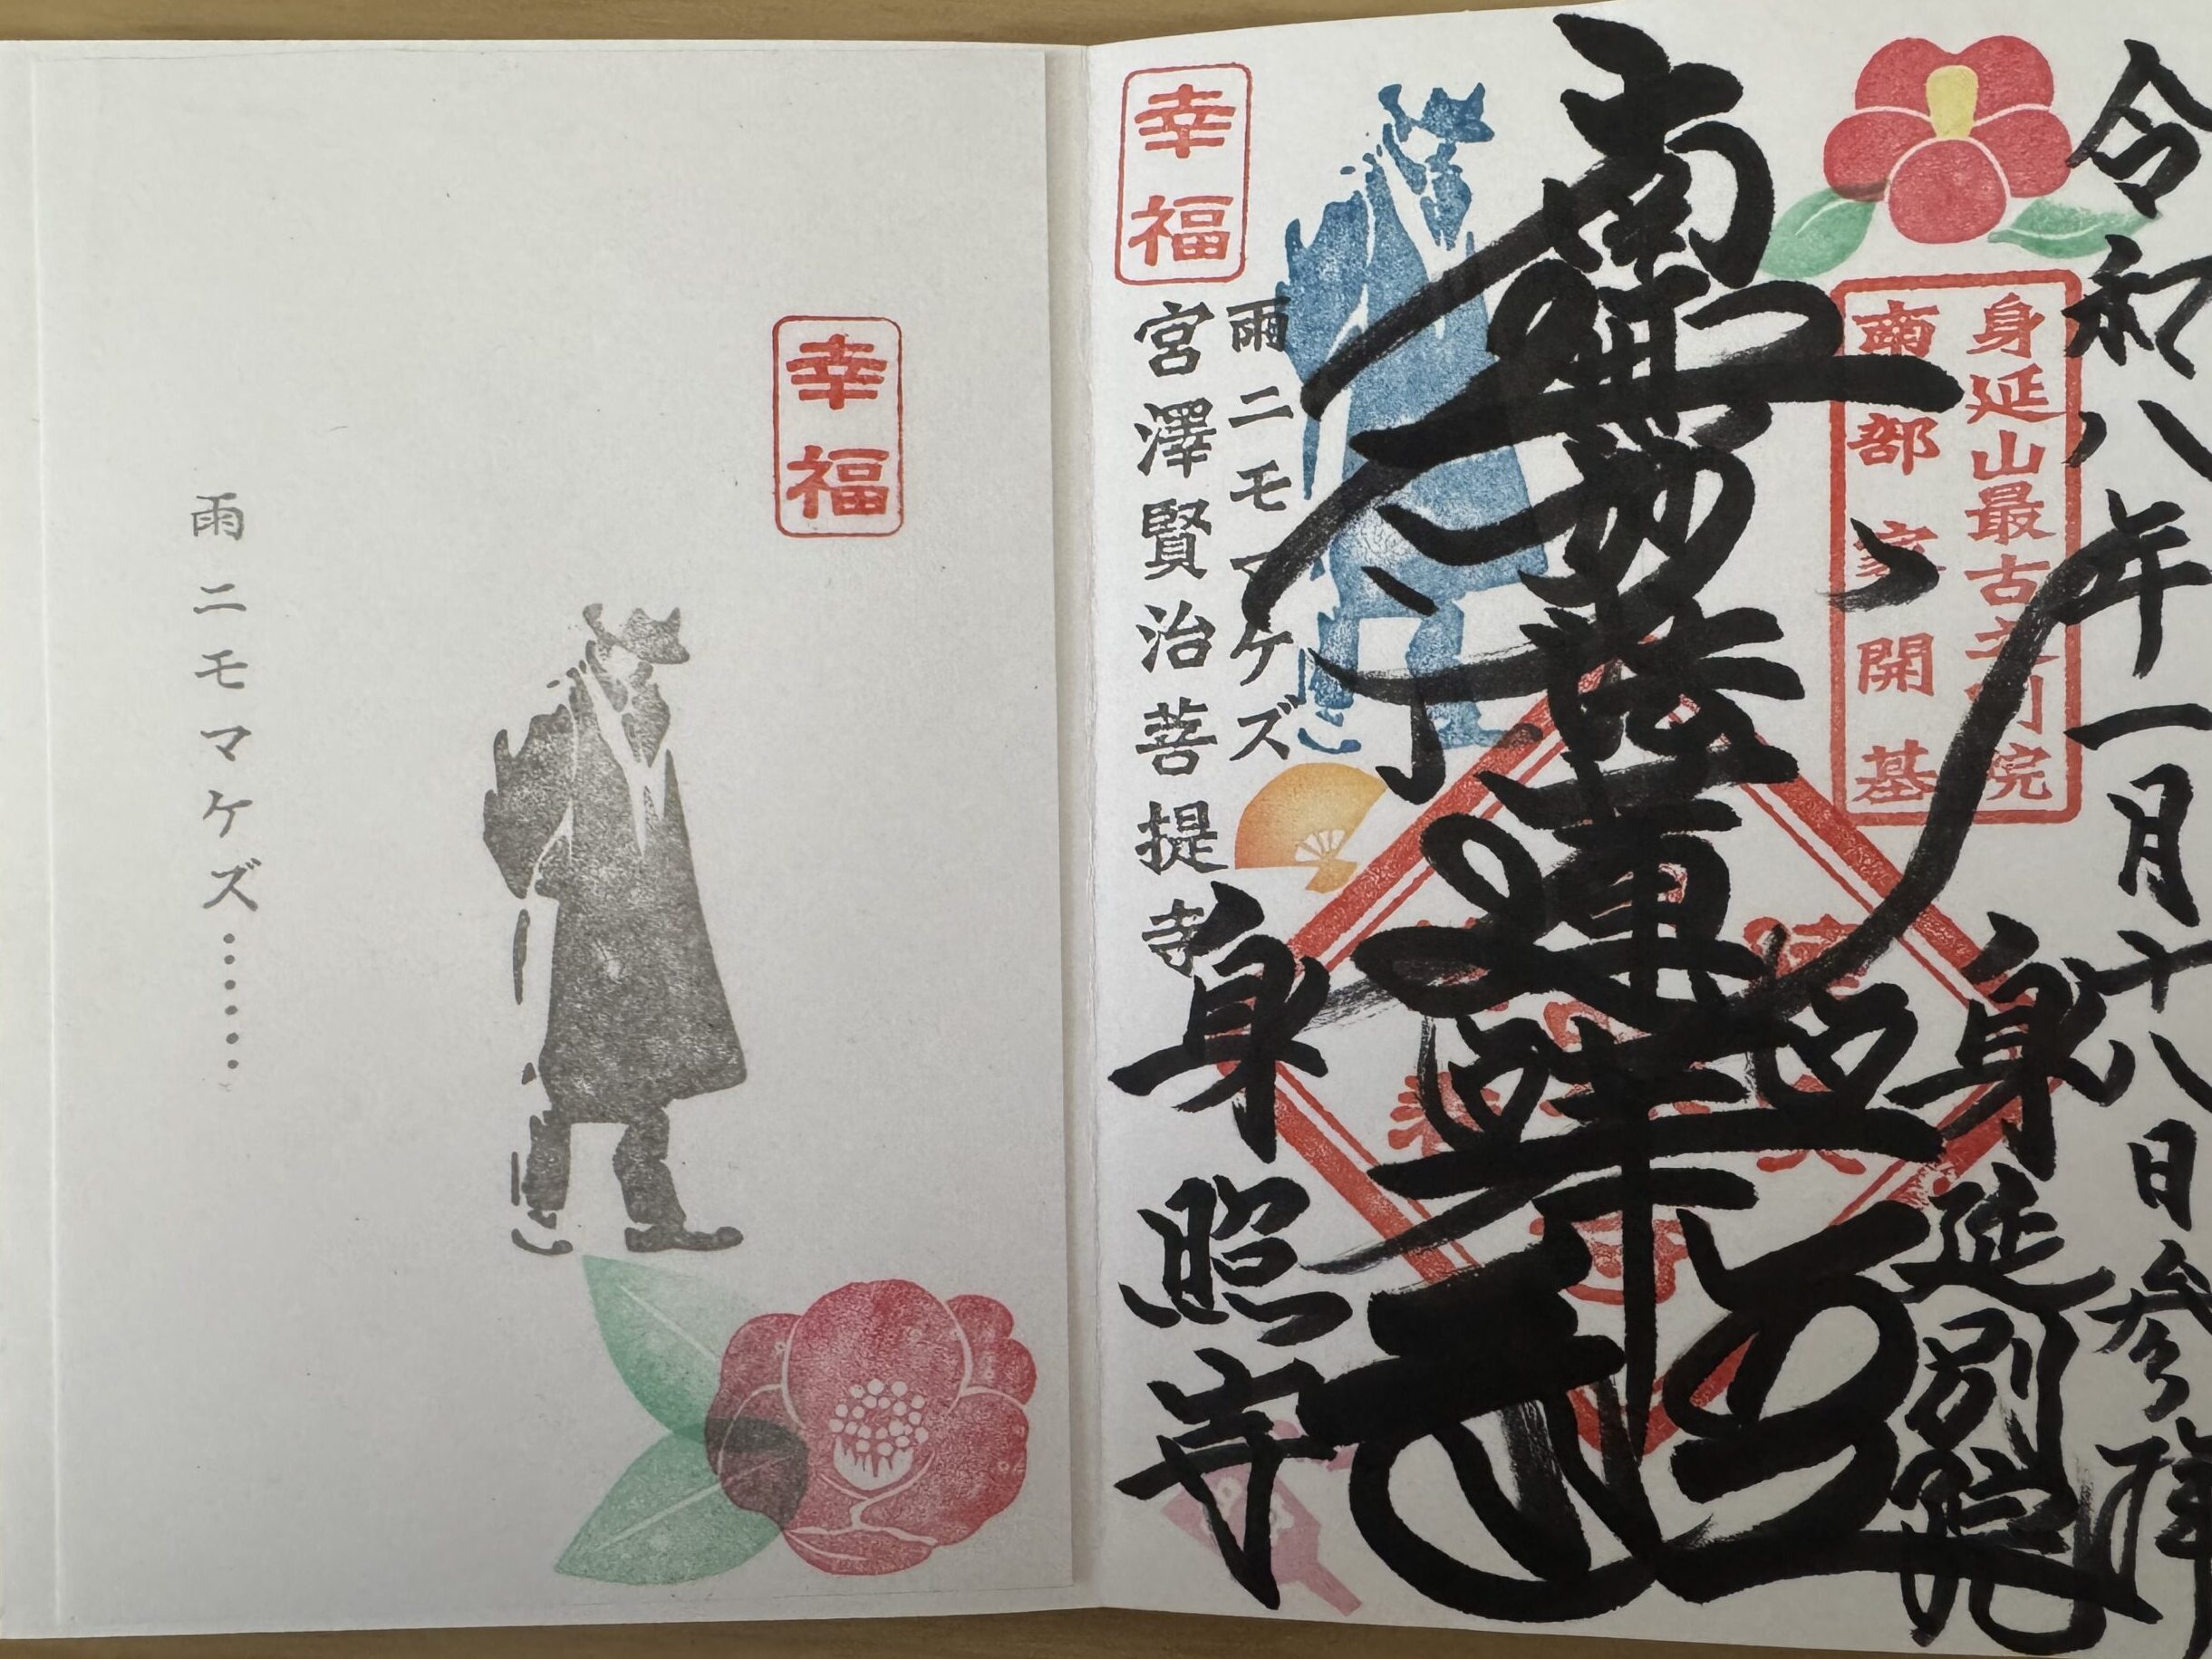 令和八年一月十八日参拝
身延別院
身延山最古之別院
南部家開基
南無妙法蓮華経
幸福
雨ニモマケズ
宮澤賢治菩提寺
身照寺
幸福
雨ニモマケズ……